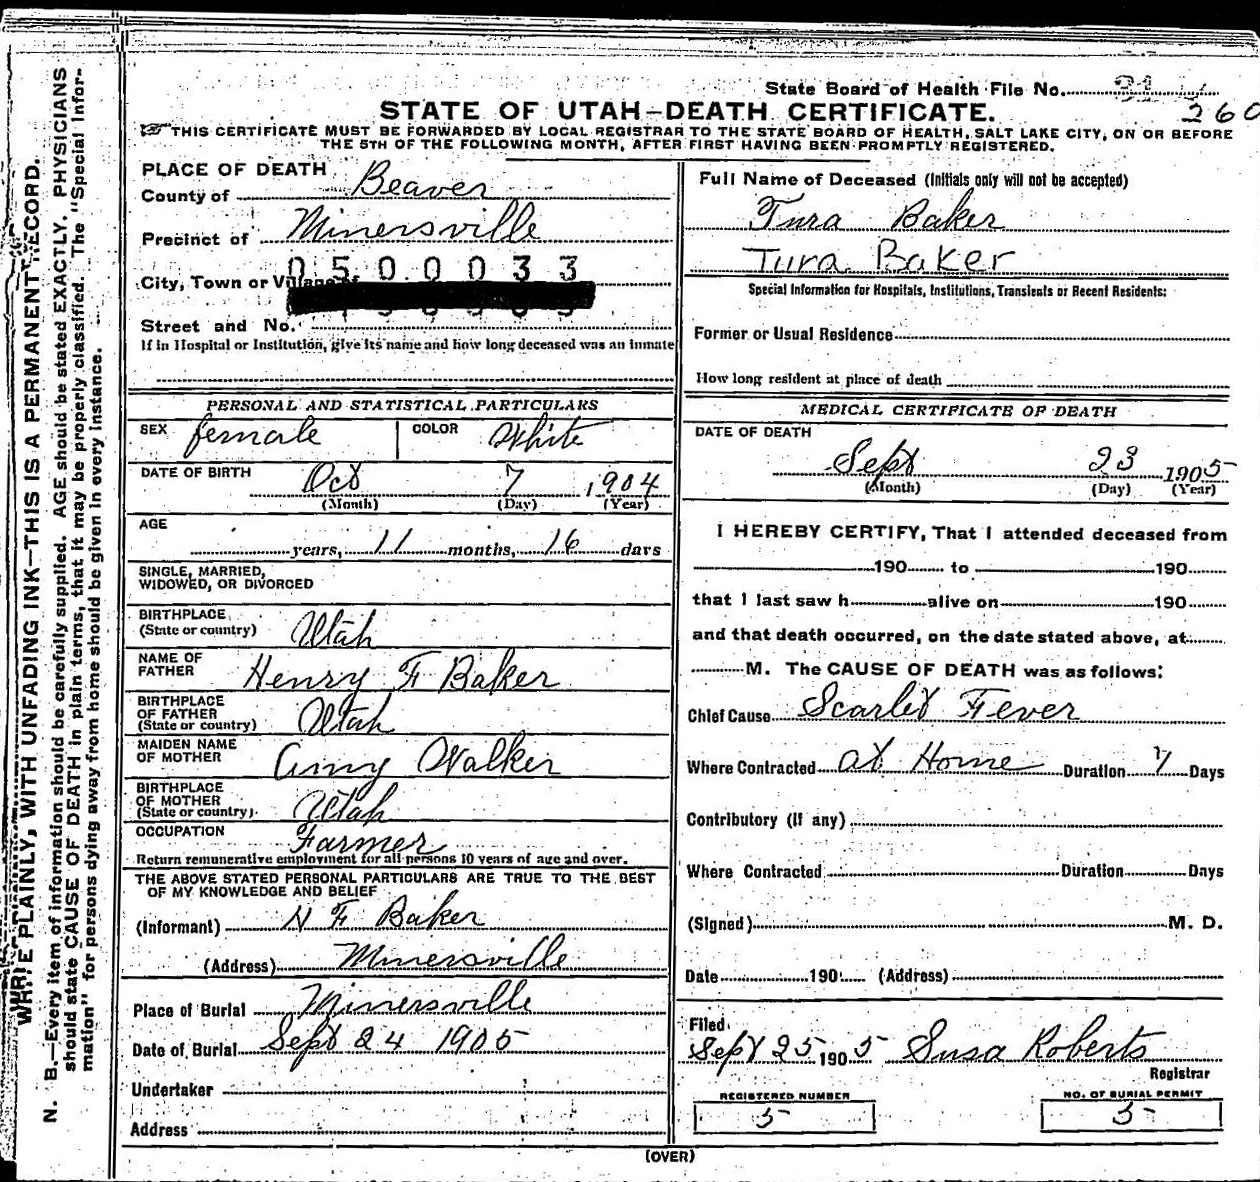 State Board of Health File No. 31
260
STATE OF UTAH—DEATH CERTIFICATE.
THIS CERTIFICATE MUST BE FORWARDED BY LOCAL REGISTRAR TO THE STATE BOARD OF HEALTH, SALT LAKE CITY, ON OR BEFORE
THE 5TH OF THE FOLLOWING MONTH, AFTER FIRST HAVING BEEN PROMPTLY REGISTERED.
WRITE PLAINLY, WITH UNFADING INK—THIS IS A PERMANENT RECORD.
N. B.—Every item of information should be carefully supplied. AGE should be stated EXACTLY. PHYSICIANS
should state CAUSE OF DEATH in plain terms, that it may be properly classified. The "Special Infor-
mation" for persons dying away from home should be given in every instance.
PLACE OF DEATH
County of Beaver
Precinct of Minersville
0500033
City, Town or Village of
Street and No.
If in Hospital or Institution, give its name and how long deceased was an inmate
PERSONAL AND STATISTICAL PARTICULARS
SEX female COLOR White
DATE OF BIRTH Oct 7 1904
(Month) (Day) (Year)
AGE
years, 11 months, 16 days
SINGLE, MARRIED,
WIDOWED, OR DIVORCED
BIRTHPLACE
(State or country) Utah
NAME OF
FATHER Henry F Baker
BIRTHPLACE
OF FATHER
(State or country) Utah
MAIDEN NAME
OF MOTHER Amy Walker
BIRTHPLACE
OF MOTHER
(State or country) Utah
OCCUPATION Farmer
Return remunerative employment for all persons 10 years of age and over.
THE ABOVE STATED PERSONAL PARTICULARS ARE TRUE TO THE BEST
OF MY KNOWLEDGE AND BELIEF
(Informant) H F Baker
(Address) Minersville
Place of Burial Minersville
Date of Burial Sept 24 1905
Undertaker
Address
Full Name of Deceased (Initials only will not be accepted)
Tura Baker
Tura Baker
Special Information for Hospitals, Institutions, Transients or Recent Residents:
Former or Usual Residence
How long resident at place of death
MEDICAL CERTIFICATE OF DEATH
DATE OF DEATH
Sept 23 1905
(Month) (Day) (Year)
I HEREBY CERTIFY, That I attended deceased from
190 to 190
that I last saw h alive on 190
and that death occurred, on the date stated above, at
M. The CAUSE OF DEATH was as follows:
Chief Cause Scarlet Fever
Where Contracted at Home Duration 7 Days
Contributory (if any)
Where Contracted Duration Days
(Signed) M. D.
Date 190 (Address)
Filed
Sept 25 1905 Susa Roberts
Registrar
REGISTERED NUMBER
5
NO. OF BURIAL PERMIT
5
(OVER)